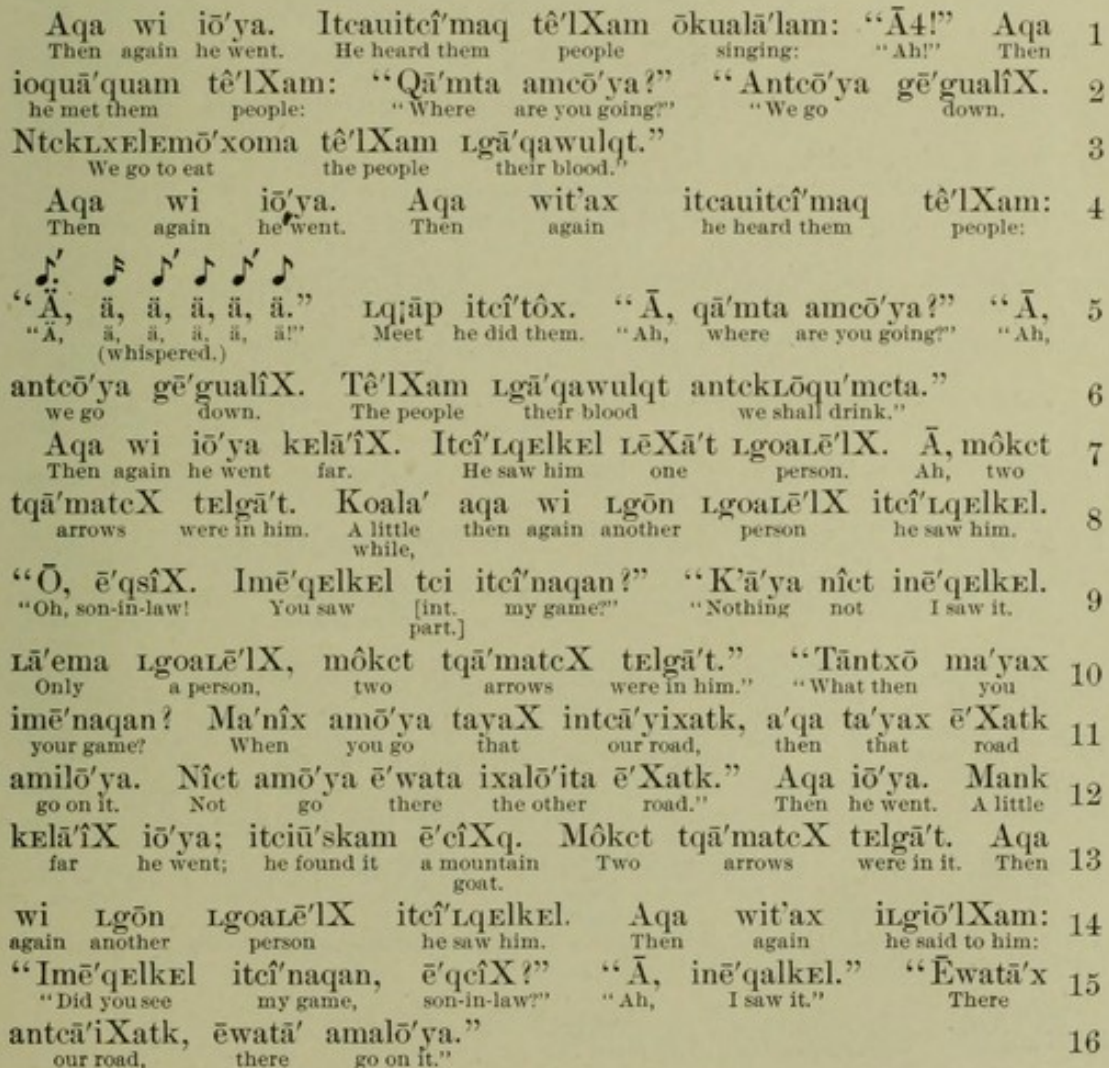 Aqa wi iō′ya. Itcauitcî′maq tê′lXam ōkualā′lam: “Ā4!” Aqa 1
Then again he went. He heard them people singing: “Ah!” Then
ioquā′quam tê′lXam: “Qā′mta amcō′ya?” “Antcō′ya gē′gualîX. 2
he met them people: “Where are you going?” “We go down.
NtckLxElEmō′xoma tê′lXam Lgā′qawulqt.” 3
We go to eat the people their blood.”
Aqa wi iō′ya. Aqa wit'ax itcauitcî′maq tê′lXam: 4
Then again he went. Then again he heard them people:
“Ä, ä, ä, ä, ä, ä.” Lq¡āp itcî′tôx. “Ā, qā′mta amcō′ya?” “Ā, 5
“Ä, ä, ä, ä, ä, ä!” Meet he did them. “Ah, where are you going?” “Ah,
(whispered.)
antcō′ya gē′gualîX. Tê′lXam Lgā′qawulqt antckLōqu′mcta.” 6
we go down. The people their blood we shall drink.”
Aqa wi iō′ya kElā′îX. Itcî′LqElkEl LēXā′t LgoaLē′lX. Ā, môkct 7
Then again he went far. He saw him one person. Ah, two
tqā′matcX tElgā′t. Koala′ aqa wi Lgōn LgoaLē′lX itcî′LqElkEl. 8
arrows were in him. A little then again another person he saw him.
while,
“Ō, ē′qsîX. Imē′qElkEl tci itcî′naqan?” “K'ā′ya nîct inē′qElkEl. 9
“Oh, son-in-law! You saw [int. my game?” “Nothing not I saw it.
part.]
Lā′ema LgoaLē′lX, môkct tqā′matcX tElgā′t.” “Tāntxō ma′yax 10
Only a person, two arrows were in him.” “What then you
imē′naqan? Ma′nîx amō′ya tayaX intcā′yixatk, a′qa ta′yax ē′Xatk 11
your game? When you go that our road, then that road
amilō′ya. Nîct amō′ya ē′wata ixalō′ita ē′Xatk.” Aqa iō′ya. Mank 12
go on it. Not go there the other road.” Then he went. A little
kElā′îX iō′ya; itciū′skam ē′cîXq. Môkct tqā′matcX tElgā′t. Aqa 13
far he went; he found it a mountain Two arrows were in it. Then
goat.
wi Lgōn LgoaLē′lX itcî′LqElkEl. Aqa wit'ax iLgiō′lXam: 14
again another person he saw him. Then again he said to him:
“Imē′qElkEl itcî′naqan, ē′qcîX?” “Ā, inē′qalkEl.” “Ēwatā′x 15
“Did you see my game, son-in-law?” “Ah, I saw it.” There
antcā′iXatk, ēwatā′ amalō′ya.” 16
our road, there go on it.”